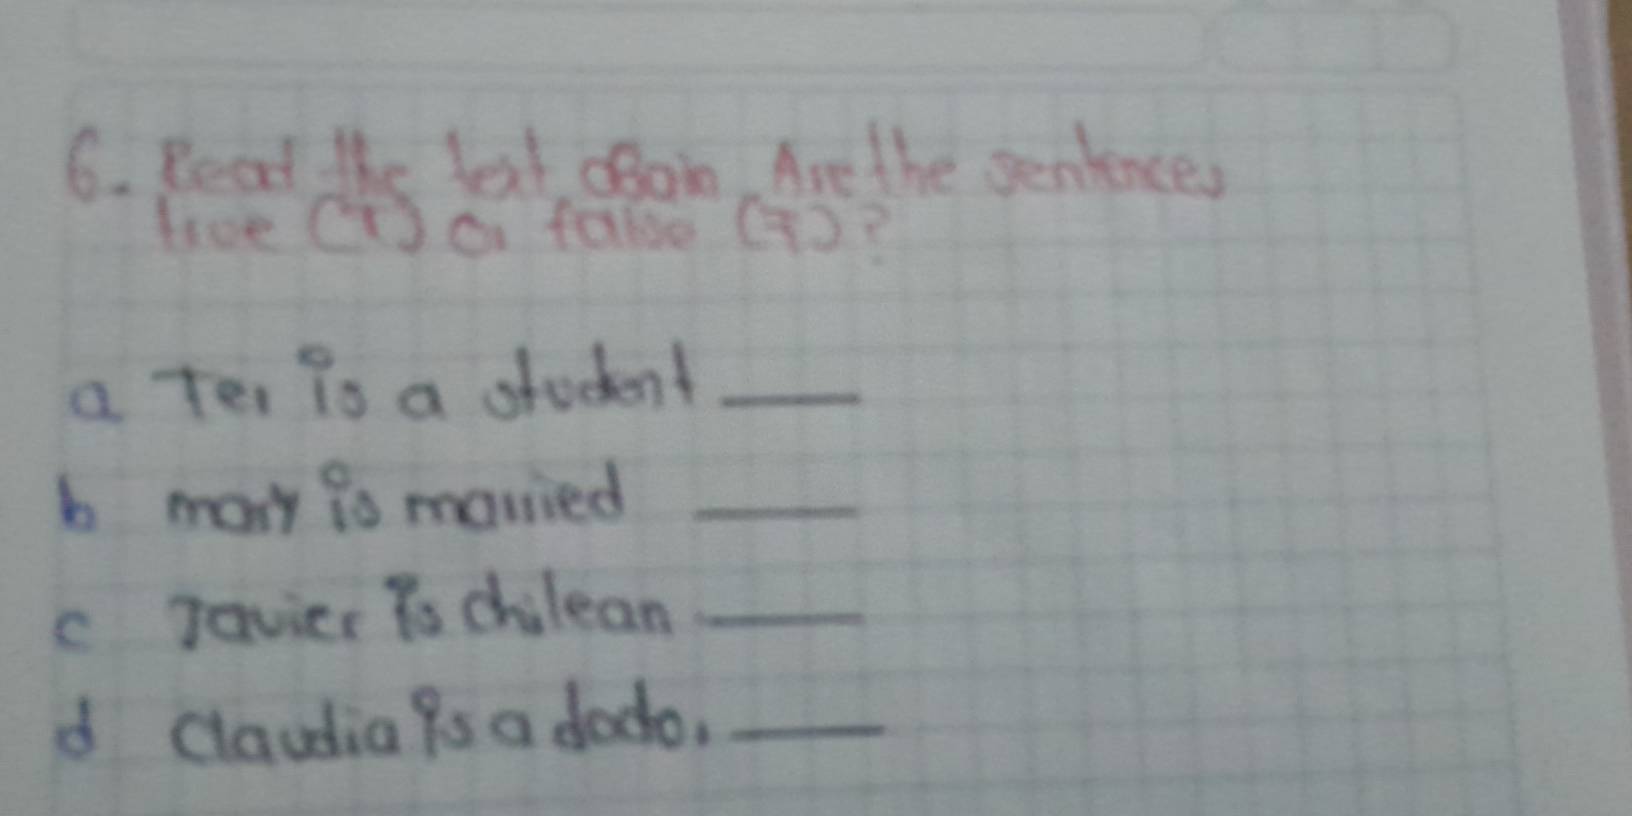 6. Read the text again. Are the sentences
true (T) or false (F)?
a Ter is a student
b mary is married
c Javier is chilean
d Claudia is a doctor.